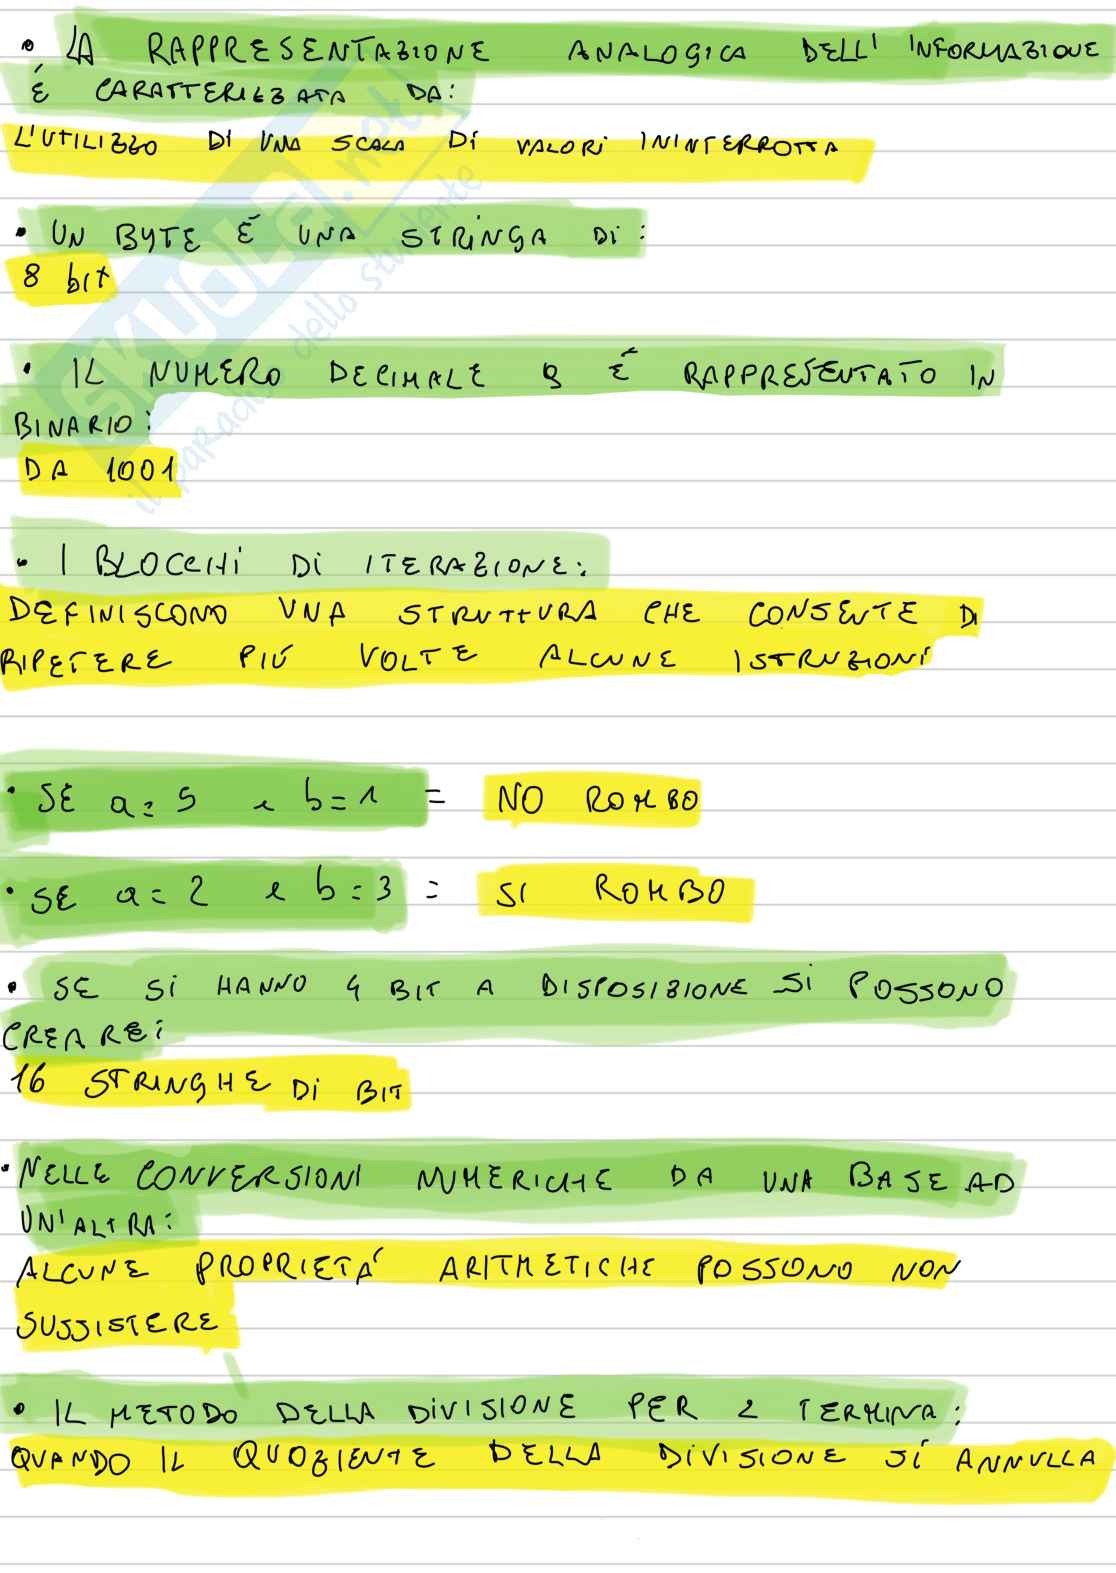 • LA RAPPRESENTAZIONE ANALOGICA DELL' INFORMAZIONE
É CARATTERIZZATA DA:
L'UTILIZZO DI UNA SCALA DI VALORI ININTERROTTA
• UN BYTE É UNA STRINGA DI:
8 bit
• IL NUMERO DECIMALE 9 É RAPPRESENTATO IN
BINARIO:
DA 1001
• I BLOCCHI DI ITERAZIONE:
DEFINISCONO UNA STRUTTURA CHE CONSENTE DI
RIPETERE PIÚ VOLTE ALCUNE ISTRUZIONI
• SE a = 5 e b = 1 = NO ROMBO
• SE a = 2 e b = 3 = SI ROMBO
• SE SI HANNO 4 BIT A DISPOSIZIONE SI POSSONO
CREARE:
16 STRINGHE DI BIT
• NELLE CONVERSIONI NUMERICHE DA UNA BASE AD
UN'ALTRA:
ALCUNE PROPRIETÁ ARITMETICHE POSSONO NON
SUSSISTERE
• IL METODO DELLA DIVISIONE PER 2 TERMINA:
QUANDO IL QUOZIENTE DELLA DIVISIONE SI ANNULLA
SKUOLA.net
il paradiso dello studente